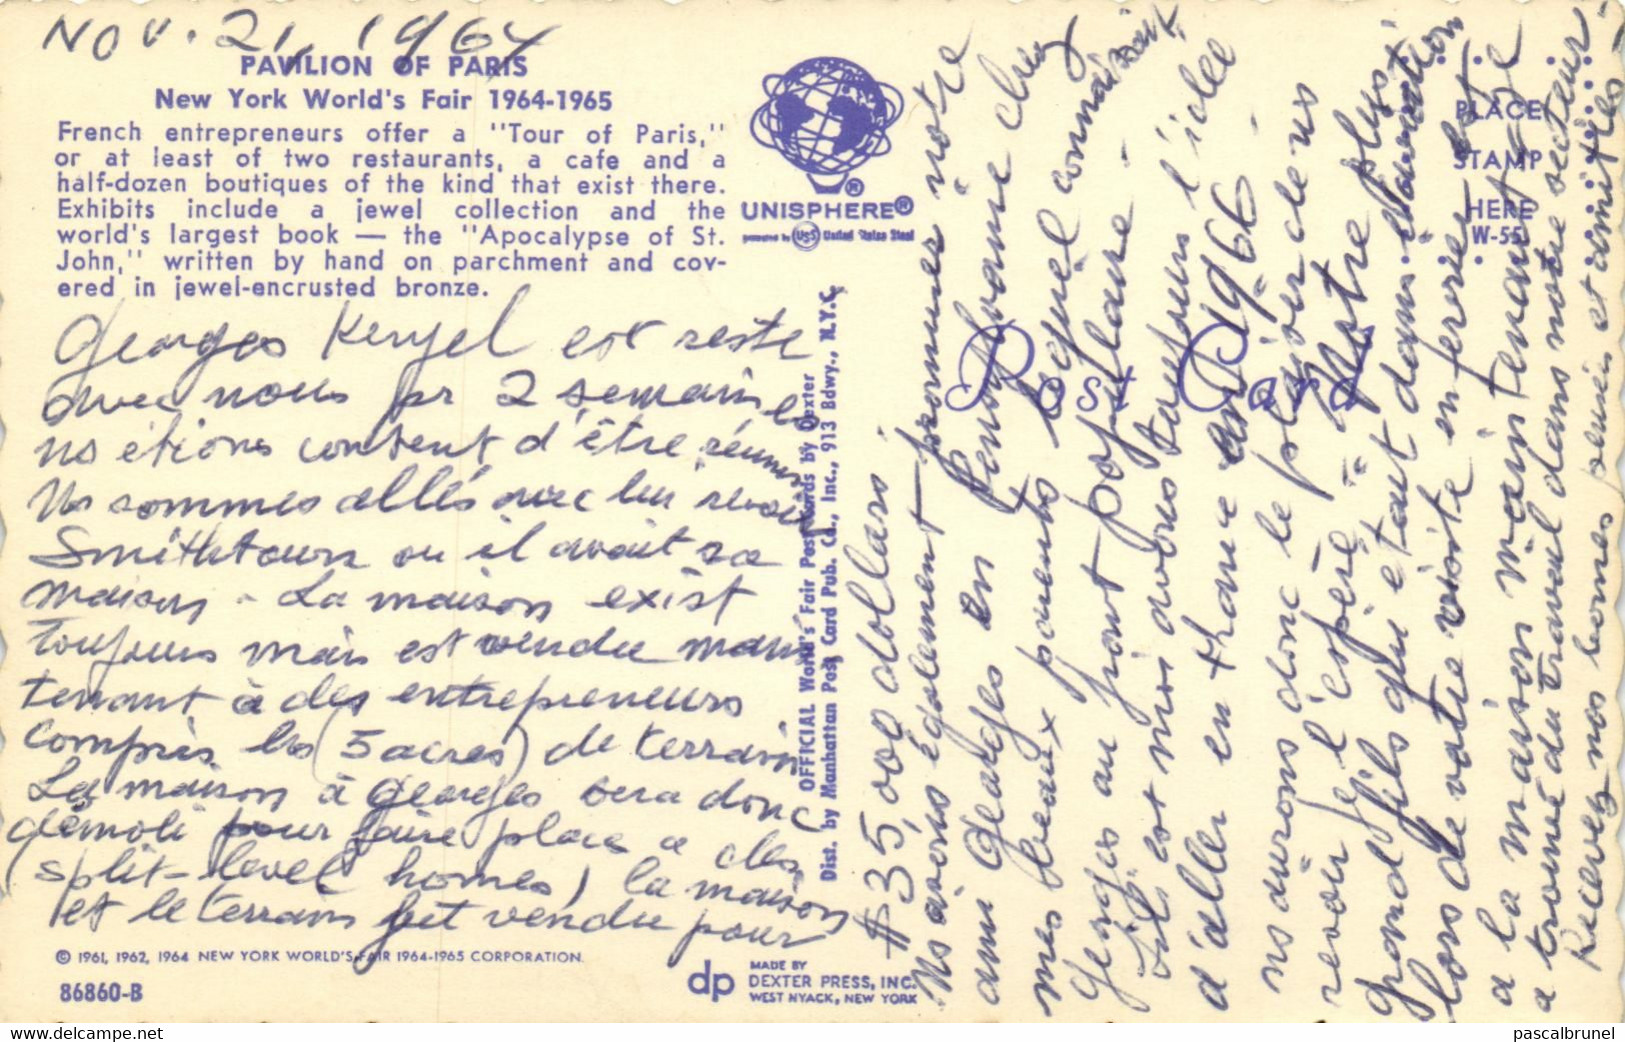 Nov. 21, 1964
PAVILION OF PARIS
New York World's Fair 1964-1965
French entrepreneurs offer a "Tour of Paris,"
or at least of two restaurants, a cafe and a
half-dozen boutiques of the kind that exist there.
Exhibits include a jewel collection and the
world's largest book — the "Apocalypse of St.
John," written by hand on parchment and cov-
ered in jewel-encrusted bronze.
UNISPHERE®
presented by USS United States Steel
PLACE
STAMP
HERE
W-55
Post Card
Georges est resté
avec nous pr 2 semaines
ns étions content d'être réunis
Ns sommes allés avec lui revoir
Smithtown ou il avait sa
maison - La maison exist
toujours mais est vendu main
tenant à des entrepreneurs
compris les (5 acres) de terrain
La maison à Georges sera donc
démoli pour faire place a des
(split-level homes) la maison
et le terrain fut vendu pour
$35,000 dollars
Ns avons également promener notre
ami Georges en Pensylvanie chez
mes beaux parents lequel connaissait
Georges au pont popilaire -
fils est moi avons toujours l'idée
d'aller en France en 1966 -
ns aurons donc le plaisir de ns
revoir je l'espère - Notre plus
grand fils qui etait dans l'aviation
lors de votre visite en fevrier est
a la maison maintenant et
a trouvé du travail dans notre secteur -
Recevez nos bonnes pensées et amitiés -
OFFICIAL World's Fair Post Cards by Dexter
Dist. by Manhattan Post Card Pub. Co., Inc., 913 Bdwy., N.Y.C.
© 1961, 1962, 1964 NEW YORK WORLD'S FAIR 1964-1965 CORPORATION
86860-B
dp MADE BY
DEXTER PRESS, INC.
WEST NYACK, NEW YORK
www.delcampe.net
pascalbrunel